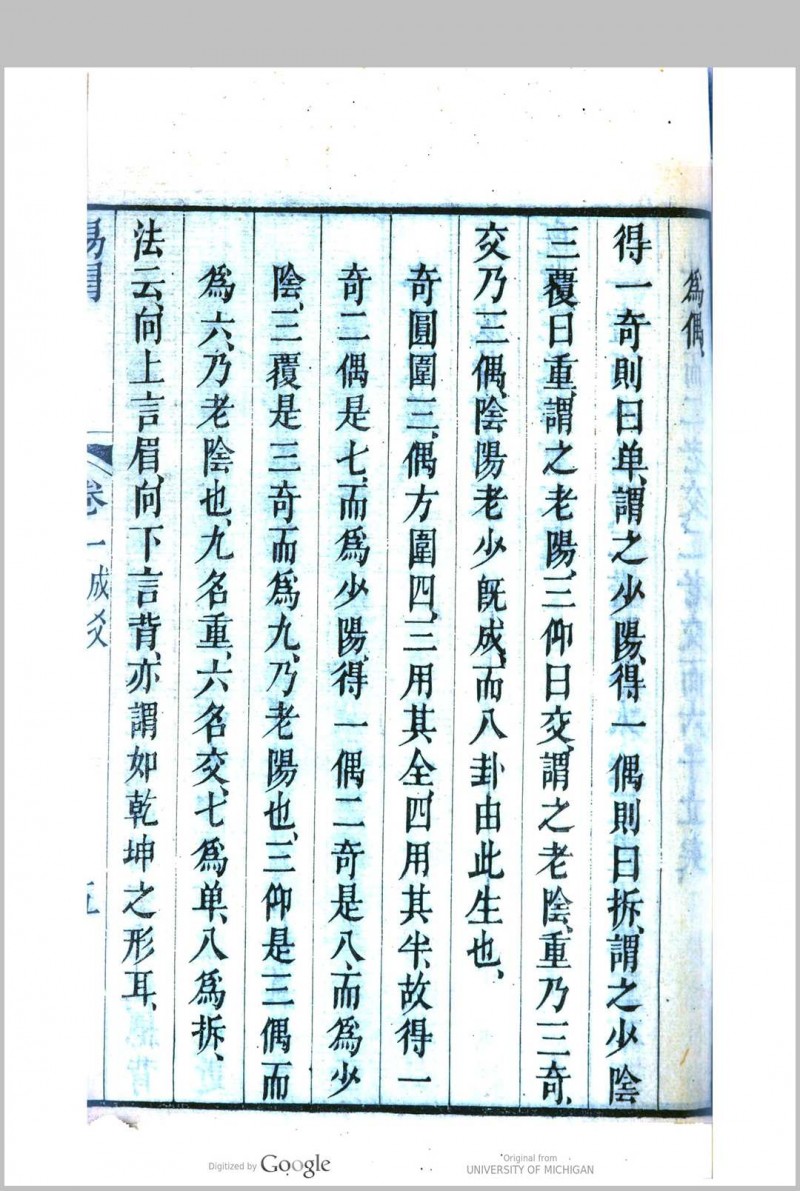 爲偶、
得一奇則曰单、謂之少陽、得一偶則曰拆、謂之少陰
三覆曰重、謂之老陽、三仰曰交、謂之老陰、重乃三奇、
交乃三偶、陰陽老少旣成、而八卦由此生也、
奇圓圍三、偶方圍四、三用其全、四用其半、故得一
奇二偶是七、而爲少陽、得一偶二奇是八、而爲少
陰、三覆是三奇而爲九、乃老陽也、三仰是三偶而
爲六、乃老陰也、九名重、六名交、七爲单、八爲拆、
法云、向上言眉、向下言背、亦謂如乾坤之形耳、
卷一 成爻
五
Digitized by Google
Original from
UNIVERSITY OF MICHIGAN